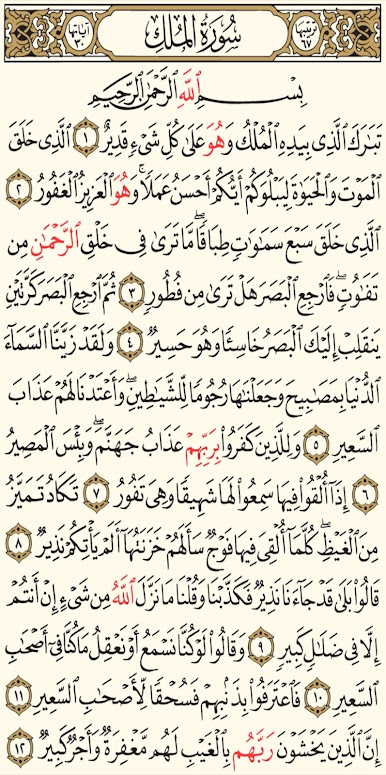 ترتيبها ٦٧ سُورَةُ المُلْكِ آياتها ٣٠
بِسْمِ ٱللَّهِ ٱلرَّحْمَٰنِ ٱلرَّحِيمِ
تَبَٰرَكَ ٱلَّذِى بِيَدِهِ ٱلْمُلْكُ وَهُوَ عَلَىٰ كُلِّ شَىْءٍ قَدِيرٌ ١ ٱلَّذِى خَلَقَ
ٱلْمَوْتَ وَٱلْحَيَوٰةَ لِيَبْلُوَكُمْ أَيُّكُمْ أَحْسَنُ عَمَلًا ۚ وَهُوَ ٱلْعَزِيزُ ٱلْغَفُورُ ٢
ٱلَّذِى خَلَقَ سَبْعَ سَمَٰوَٰتٍ طِبَاقًا ۖ مَّا تَرَىٰ فِى خَلْقِ ٱلرَّحْمَٰنِ مِن
تَفَٰوُتٍ ۖ فَٱرْجِعِ ٱلْبَصَرَ هَلْ تَرَىٰ مِن فُطُورٍ ٣ ثُمَّ ٱرْجِعِ ٱلْبَصَرَ كَرَّتَيْنِ
يَنقَلِبْ إِلَيْكَ ٱلْبَصَرُ خَاسِئًا وَهُوَ حَسِيرٌ ٤ وَلَقَدْ زَيَّنَّا ٱلسَّمَآءَ
ٱلدُّنْيَا بِمَصَٰبِيحَ وَجَعَلْنَٰهَا رُجُومًا لِّلشَّيَٰطِينِ ۖ وَأَعْتَدْنَا لَهُمْ عَذَابَ
ٱلسَّعِيرِ ٥ وَلِلَّذِينَ كَفَرُوا۟ بِرَبِّهِمْ عَذَابُ جَهَنَّمَ ۖ وَبِئْسَ ٱلْمَصِيرُ
٦ إِذَآ أُلْقُوا۟ فِيهَا سَمِعُوا۟ لَهَا شَهِيقًا وَهِىَ تَفُورُ ٧ تَكَادُ تَمَيَّزُ
مِنَ ٱلْغَيْظِ ۖ كُلَّمَآ أُلْقِىَ فِيهَا فَوْجٌ سَأَلَهُمْ خَزَنَتُهَآ أَلَمْ يَأْتِكُمْ نَذِيرٌ ٨
قَالُوا۟ بَلَىٰ قَدْ جَآءَنَا نَذِيرٌ فَكَذَّبْنَا وَقُلْنَا مَا نَزَّلَ ٱللَّهُ مِن شَىْءٍ إِنْ أَنتُمْ
إِلَّا فِى ضَلَٰلٍ كَبِيرٍ ٩ وَقَالُوا۟ لَوْ كُنَّا نَسْمَعُ أَوْ نَعْقِلُ مَا كُنَّا فِىٓ أَصْحَٰبِ
ٱلسَّعِيرِ ١٠ فَٱعْتَرَفُوا۟ بِذَنۢبِهِمْ فَسُحْقًا لِّأَصْحَٰبِ ٱلسَّعِيرِ ١١
إِنَّ ٱلَّذِينَ يَخْشَوْنَ رَبَّهُم بِٱلْغَيْبِ لَهُم مَّغْفِرَةٌ وَأَجْرٌ كَبِيرٌ ١٢